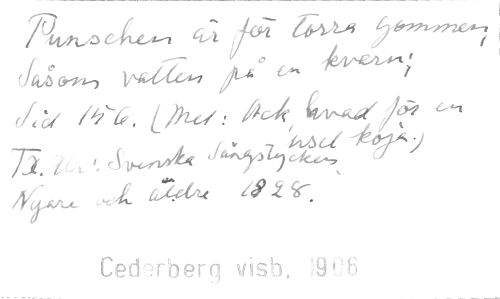 Punschen är för torra gommen,
Såsom vatten på en kvarn;
Sid 156. (Mel: Ack, hvad för en
usel koja.)
Tx. ur: Svenska Sångstycken,
Nyare och äldre 1828.
Cederberg visb. 1906